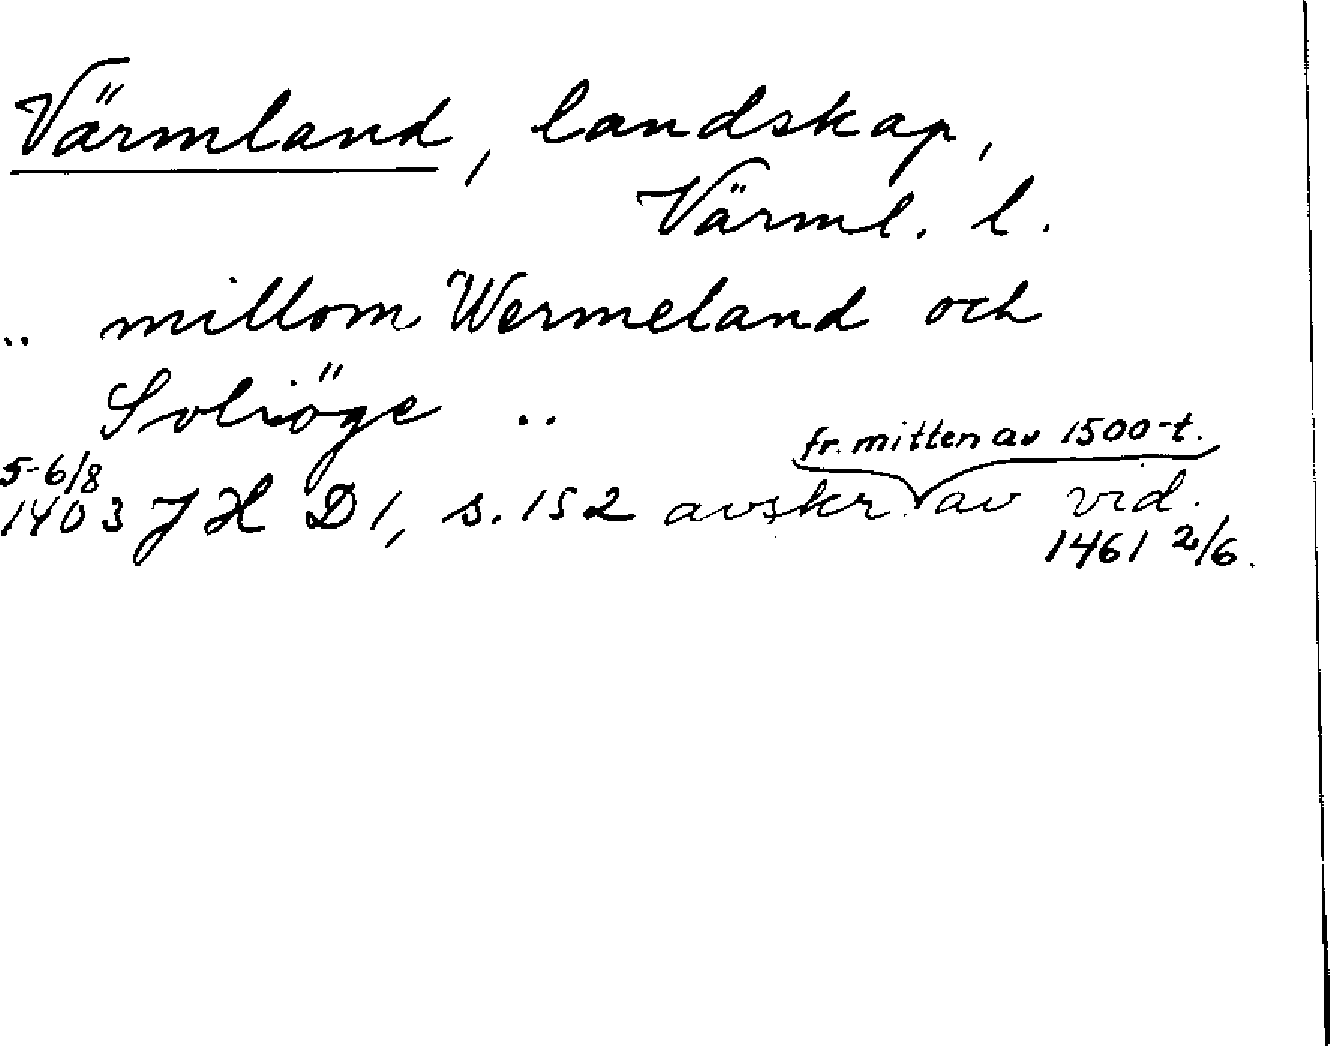 Värmland, landskap,
Värml. l.
.. millom Wermeland och
Soliöge ..
fr. mitten av 1500-t.
5-6/8
1403 JH D1, s. 152 avskr. av vid.
1461 2/6.